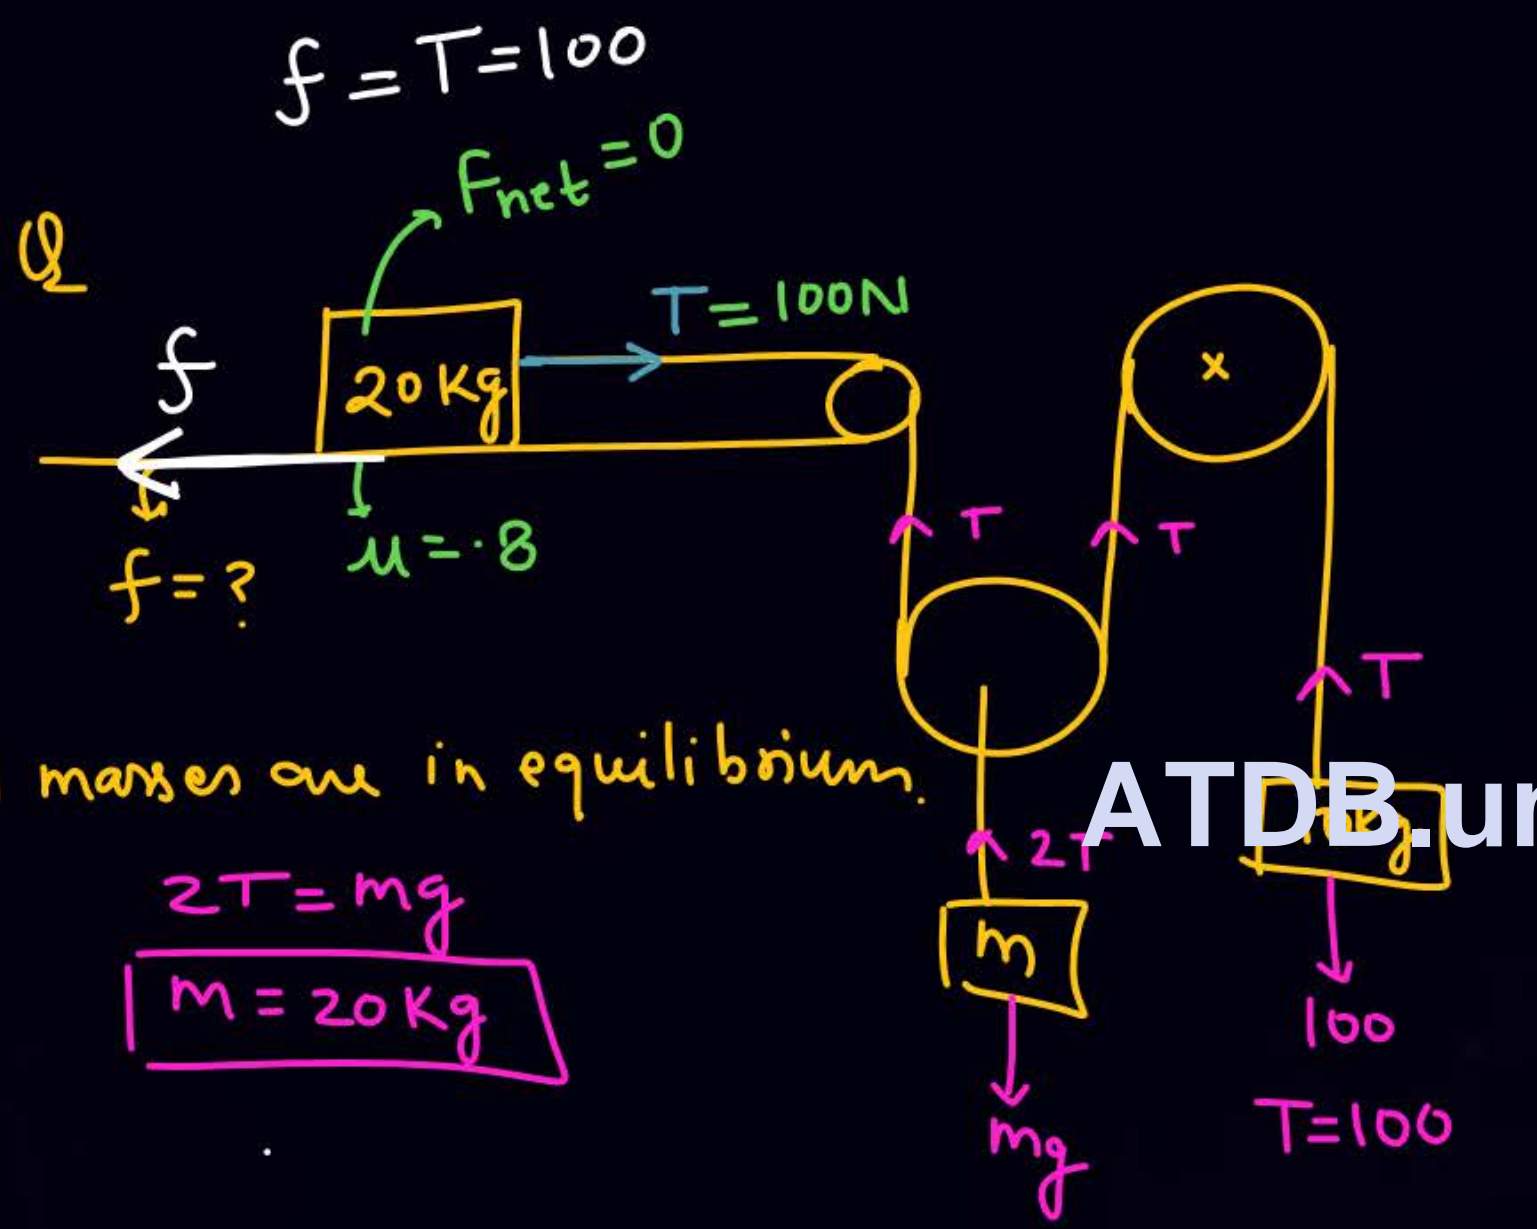 f = T = 100
Fnet = 0
Q
T = 100N
f
20 Kg
x
μ = .8
f = ?
T
T
T
masses are in equilibrium.
ATDB.un
2T
2T = mg
m = 20 Kg
m
100
mg
T = 100